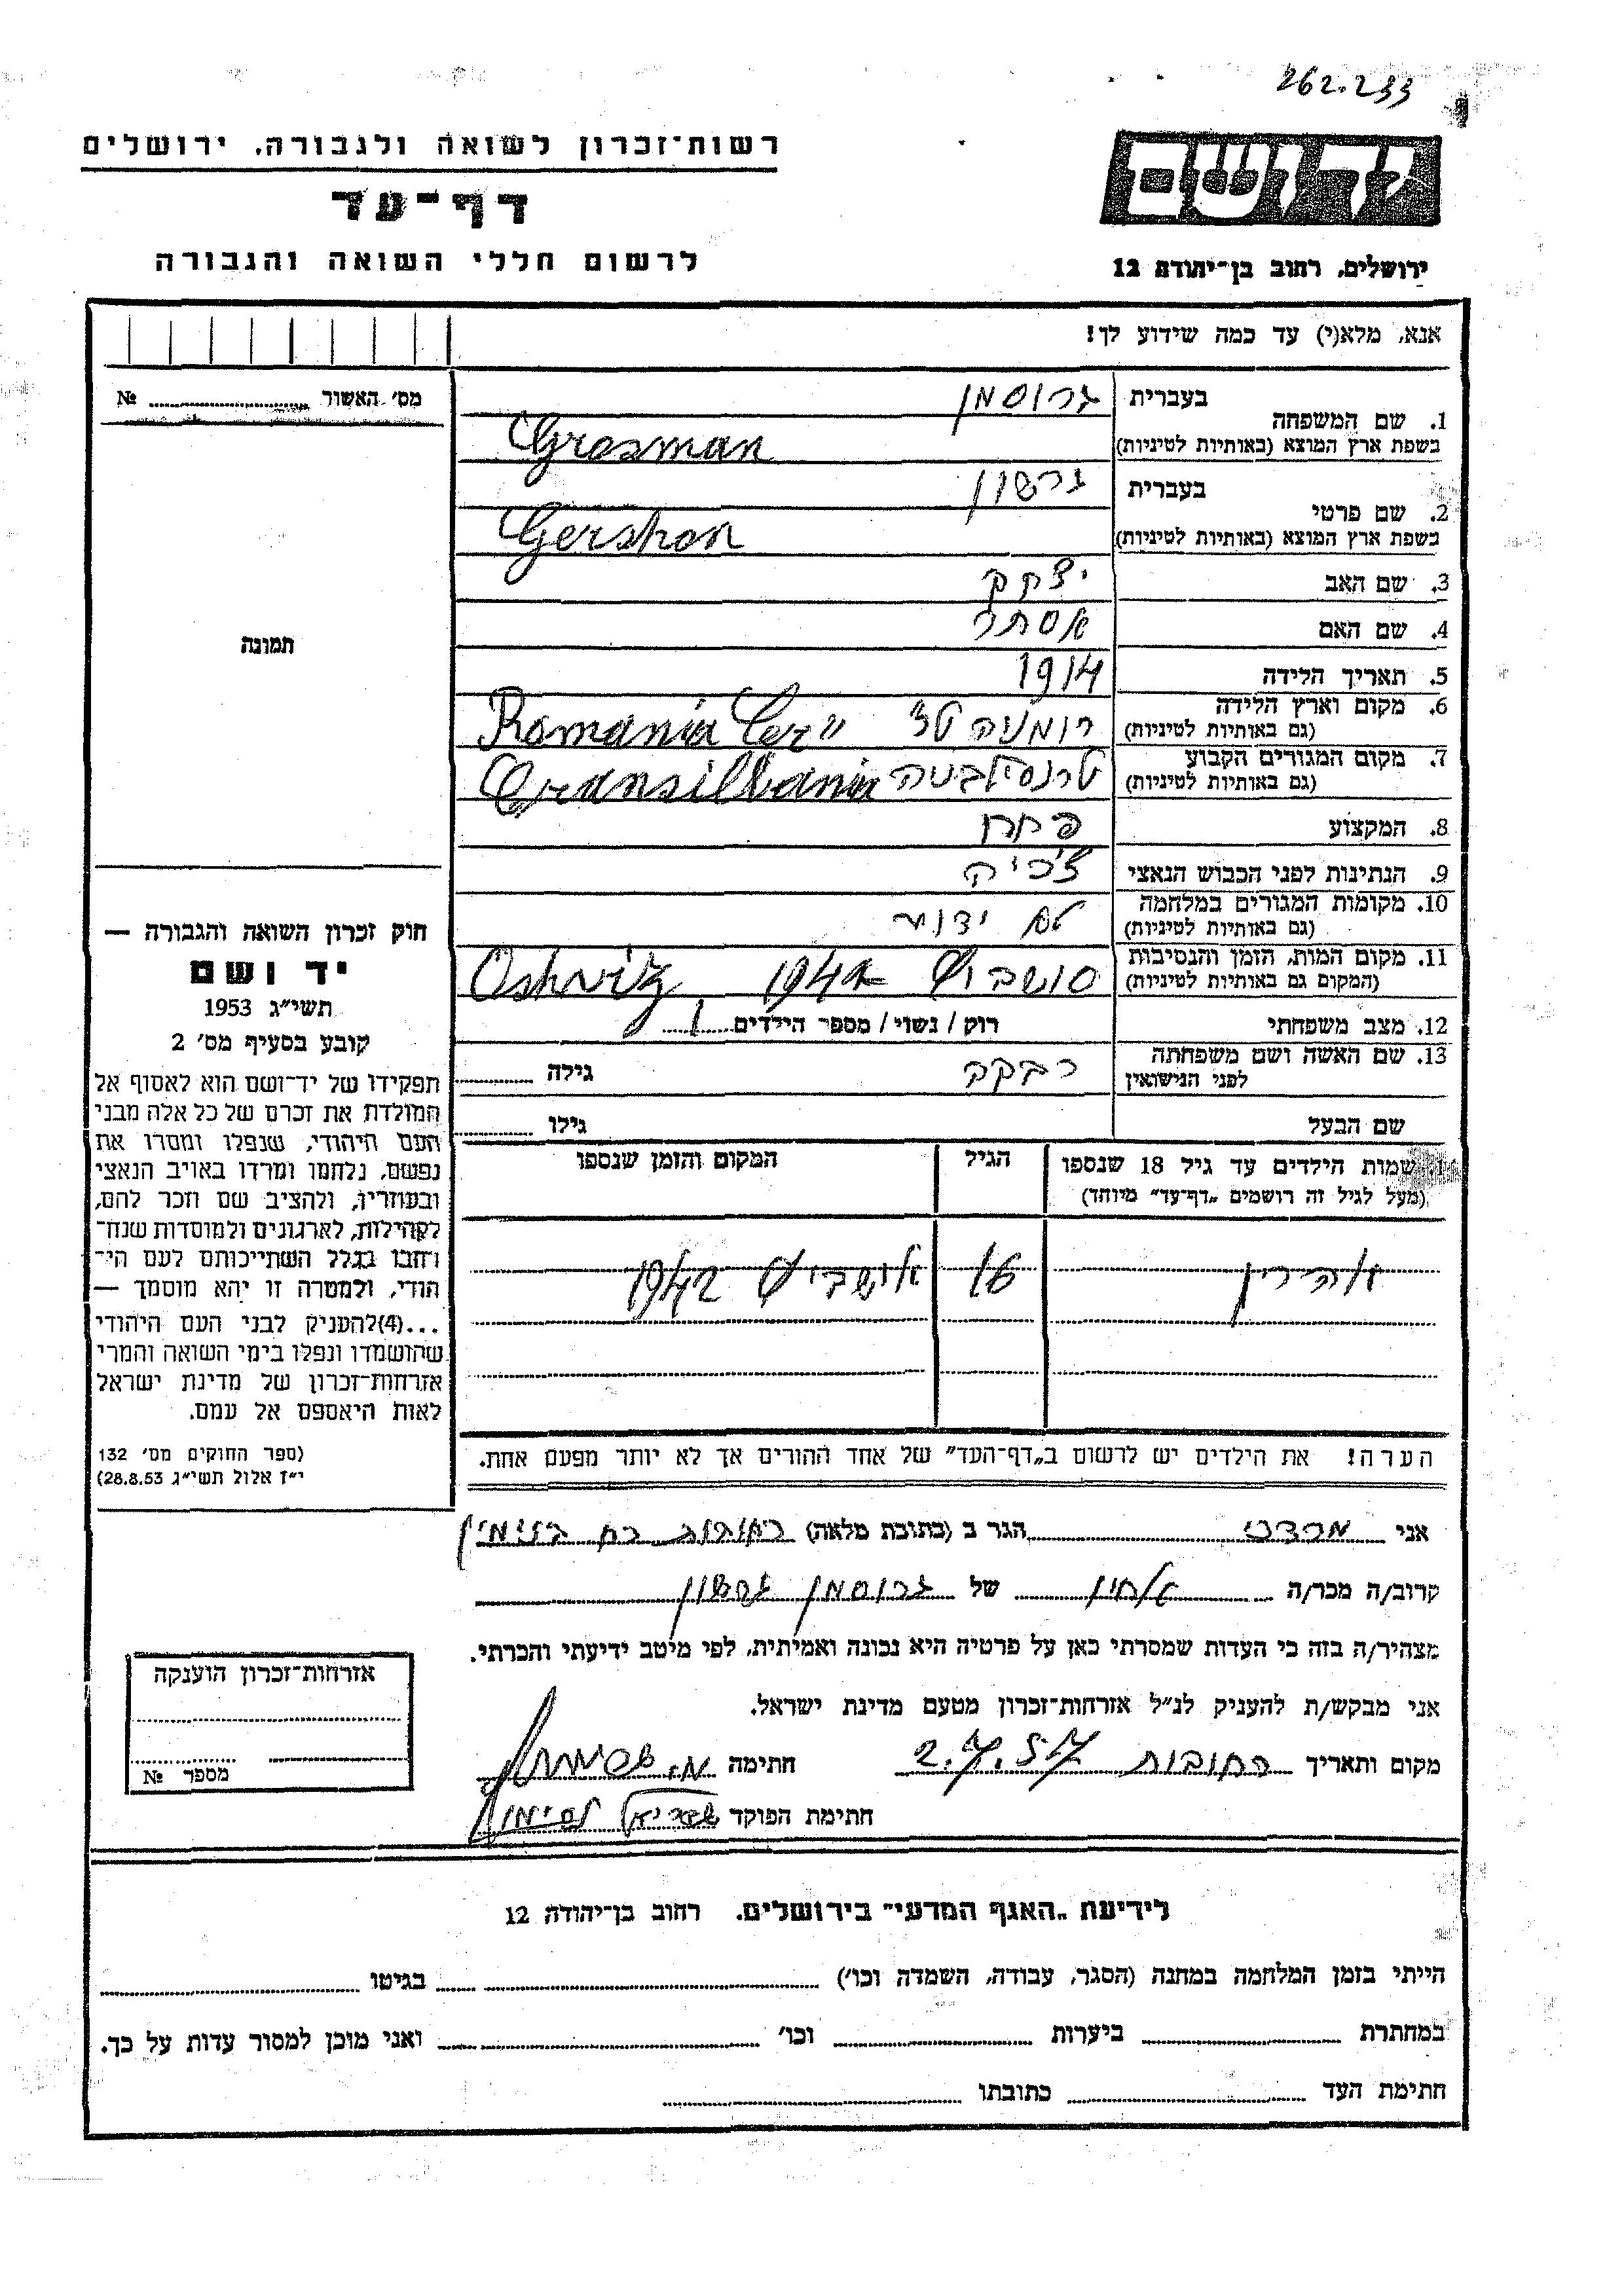 262.233
רשות־זכרון לשואה ולגבורה, ירושלים
דף־עד
לרשום חללי השואה והגבורה
יד ושם
ירושלים, רחוב בן־יהודה 12
אנא, מלא(י) עד כמה שידוע לך!
מס׳ האשור № 
1. שם המשפחה
בעברית גרוסמן
בשפת ארץ המוצא (באותיות לטיניות) Grosman
2. שם פרטי
בעברית גרשון
בשפת ארץ המוצא (באותיות לטיניות) Gershon
3. שם האב יצחק
4. שם האם אסתר
5. תאריך הלידה 1914
6. מקום וארץ הלידה (גם באותיות לטיניות) רומניה Romania
7. מקום המגורים הקבוע (גם באותיות לטיניות) טרנסילבניה Transilbania
8. המקצוע פחח
9. הנתינות לפני הכבוש הנאצי
10. מקומות המגורים במלחמה (גם באותיות לטיניות) לא ידוע
11. מקום המות, הזמן והנסיבות (המקום גם באותיות לטיניות) 194 Oshwitz
12. מצב משפחתי רוק / נשוי / מספר הילדים 1
13. שם האשה ושם משפחתה לפני הנישואין רבקה גילה
שם הבעל גילו
שמות הילדים עד גיל 18 שנספו
(מעל לגיל זה רושמים „דף־עד״ מיוחד)
הגיל
המקום והזמן שנספו
אהרון 16 אושביץ 1942
הערה! את הילדים יש לרשום ב„דף־העד״ של אחד ההורים אך לא יותר מפעם אחת.
תמונה
חוק זכרון השואה והגבורה —
יד ושם
תשי״ג 1953
קובע בסעיף מס׳ 2
תפקידו של יד־ושם הוא לאסוף אל
המולדת את זכרם של כל אלה מבני
העם היהודי, שנפלו ומסרו את
נפשם, נלחמו ומרדו באויב הנאצי
ובעוזריו, ולהציב שם וזכר להם,
לקהילות, לארגונים ולמוסדות שנח־
רבו בגלל השתייכותם לעם הי־
הודי, ולמטרה זו יהא מוסמך —
...(4)להעניק לבני העם היהודי
שהושמדו ונפלו בימי השואה והמרי
אזרחות־זכרון של מדינת ישראל
לאות היאספם אל עמם.
(ספר החוקים מס׳ 132
י״ז אלול תשי״ג 28.8.53)
אני מרדכי הגר ב (כתובת מלאה) רחובות בנימין
קרוב/ה מכר/ה אחין של גרוסמן גרשון
מצהיר/ה בזה כי העדות שמסרתי כאן על פרטיה היא נכונה ואמיתית, לפי מיטב ידיעתי והכרתי.
אני מבקש/ת להעניק לנ״ל אזרחות־זכרון מטעם מדינת ישראל.
מקום ותאריך רחובות 2.7.57 חתימה
חתימת הפוקד
אזרחות־זכרון הוענקה
מספר №
לידיעת „האגף המדעי״ בירושלים, רחוב בן־יהודה 12
הייתי בזמן המלחמה במחנה (הסגר, עבודה, השמדה וכו׳) בגיטו
במחתרת ביערות וכו׳ ואני מוכן למסור עדות על כך.
חתימת העד כתובתו